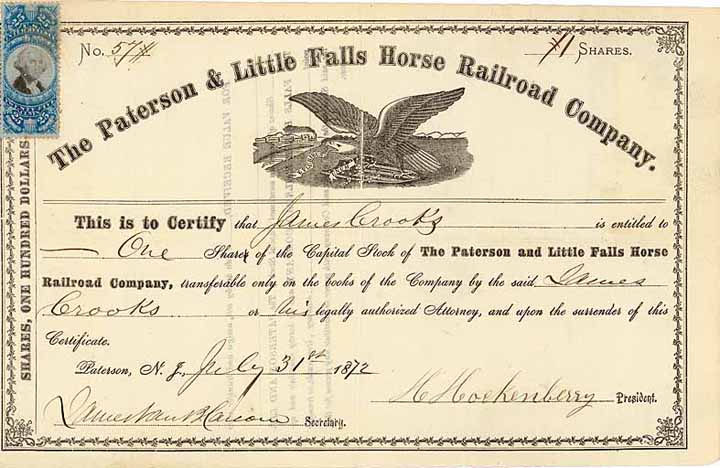 No. 57 1 SHARES.
The Paterson & Little Falls Horse Railroad Company.
This is to Certify that James Crooks is entitled to
One Share of the Capital Stock of The Paterson and Little Falls Horse
Railroad Company, transferable only on the books of the Company by the said James
Crooks or his legally authorized Attorney, and upon the surrender of this
Certificate.
Paterson, N. J., July 31st 1872
H Hockenberry President.
James Secretary.
SHARES, ONE HUNDRED DOLLARS
FOR VALUE RECEIVED
25 25